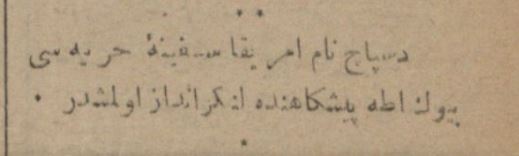 دسپاچ نام امریقا سفینهٔ حربیه سی
بیوك اطه پیشکاهنده لنكرانداز اولمشدر .